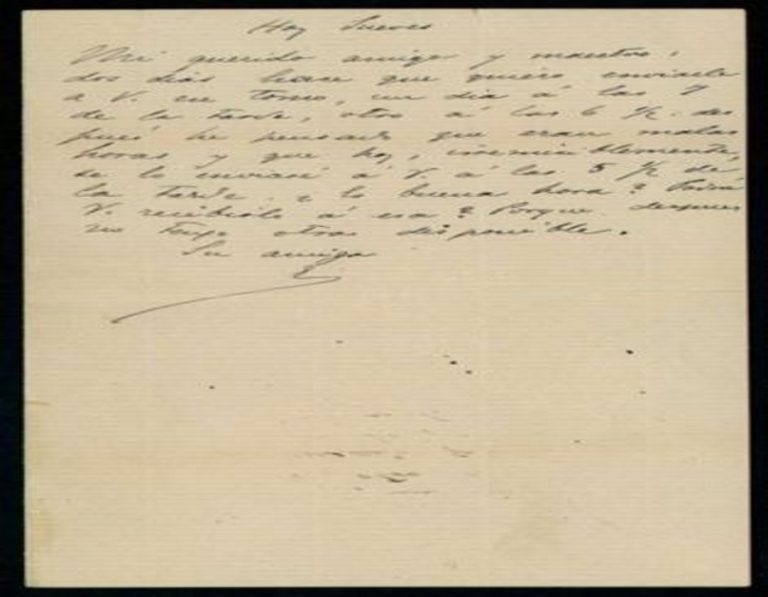 Hoy Jueves
Mi querido amigo y maestro:
dos días hace que quiero enviarle
a V. un tomo, un dia á las 7
de la tarde, otro á las 6 ½. des
pués he pensado que eran malas
horas y que hoy,
se lo enviaré á V. á las 5 ½ de
la tarde. ¿ es buena hora? Podrá
V. recibirlo á esa? Porque despues
no tengo otra disponible.
Su amigo